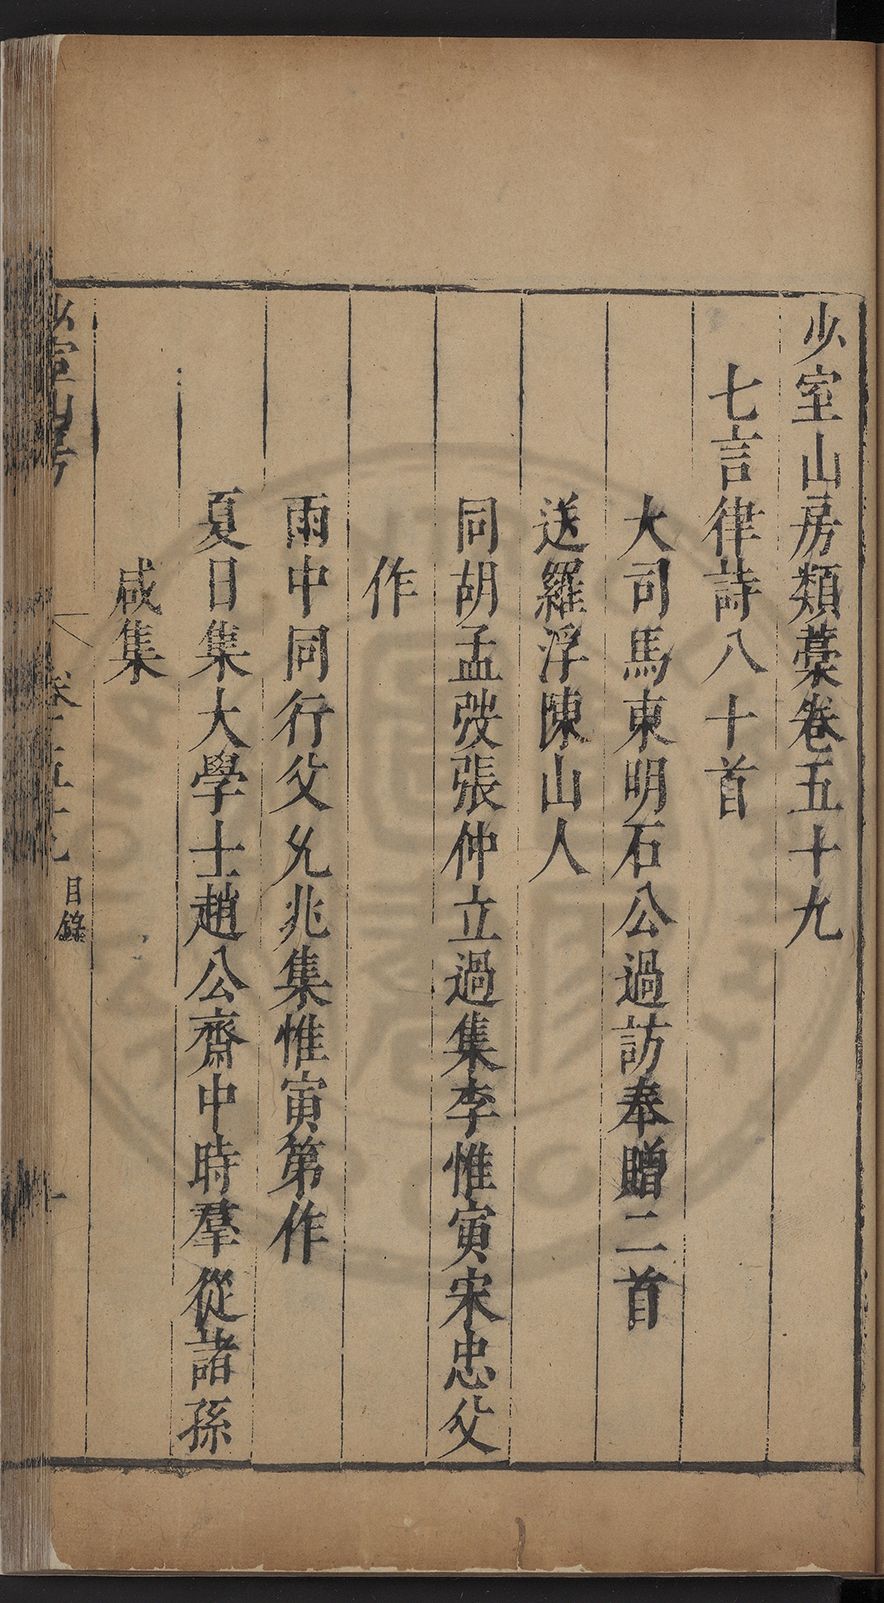 少室山房類藁卷五十九
七言律詩八十首
大司馬東明石公過訪奉贈二首
送羅浮陳山人
同胡孟弢張仲立過集李惟寅宋忠父
作
雨中同行父允兆集惟寅第作
夏日集大學士趙公齋中時羣從諸孫
咸集
少室山房
目錄